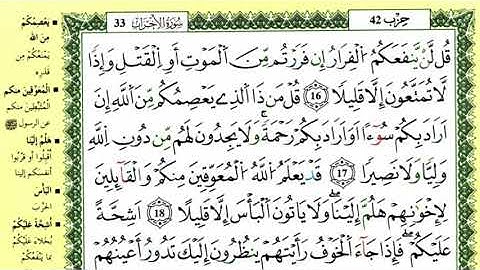 حزب 42
سورة الأحزاب 33
قُل لَّنْ يَّنفَعَكُمُ الْفِرَارُ إِن فَرَرْتُم مِّنَ الْمَوْتِ أَوِ الْقَتْلِ وَإِذًا
لَّا تُمَتَّعُونَ إِلَّا قَلِيلًا 16 قُلْ مَن ذَا الَّذِي يَعْصِمُكُم مِّنَ اللَّهِ إِنَ
اَرَادَ بِكُمْ سُوءًا اَوَ اَرَادَ بِكُمْ رَحْمَةً وَلَا يَجِدُونَ لَهُم مِّن دُونِ اللَّهِ
وَلِيًّا وَلَا نَصِيرًا 17 قَدْ يَعْلَمُ اللَّهُ الْمُعَوِّقِينَ مِنكُمْ وَالْقَائِلِينَ
لِإِخْوَانِهِمْ هَلُمَّ إِلَيْنَا وَلَا يَاتُونَ الْبَأْسَ إِلَّا قَلِيلًا 18 اَشِحَّةً
عَلَيْكُمْ فَإِذَا جَاءَ الْخَوْفُ رَأَيْتَهُمْ يَنظُرُونَ إِلَيْكَ تَدُورُ أَعْيُنُهُمْ
يَعْصِمُكُمْ
مِنَ اللهِ
يَمْنَعُكُمْ مِنْ
قَدَرِهِ
الْمُعَوِّقِينَ مِنكُمْ
الْمُثَبِّطِينَ مِنكُمْ
عن الرسول ﷺ
هَلُمَّ إِلَيْنَا
أَقْبِلُوا أَوْ قَرِّبُوا
أَنْفُسَكُمْ إِلَيْنَا
الْبَأْسَ
الْحَرْبَ
أَشِحَّةً عَلَيْكُمْ
بُخَلَاءَ عَلَيْكُمْ
بِمَا يَنْفَعُكُمْ